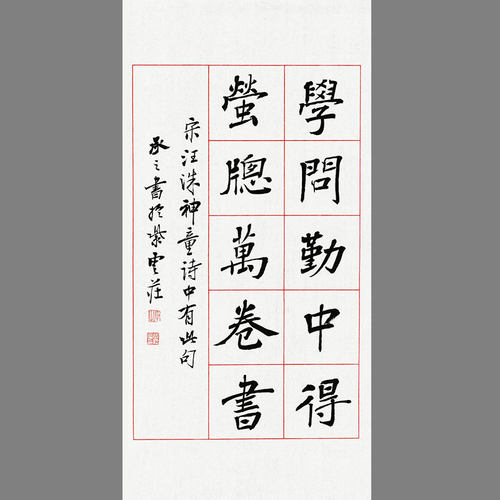 學問勤中得
螢牕萬卷書
宋汪洙神童诗中有此句
承之書於紫雲莊